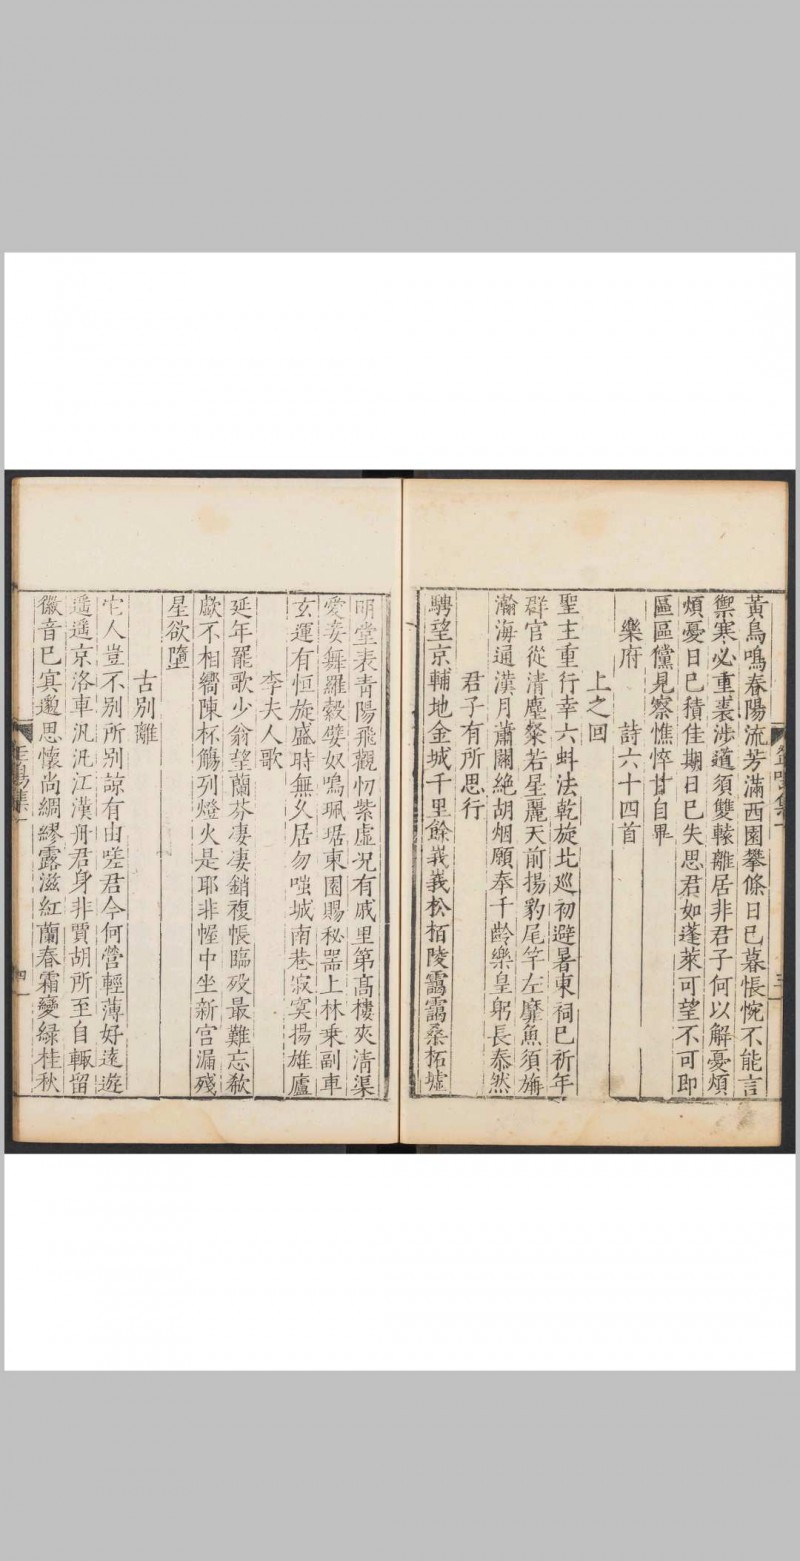 黃鳥鳴春陽流芳滿西園攀條日已暮悵惋不能言
禦寒必重裘涉道須雙轅離居非君子何以解憂煩
煩憂日已積佳期日已失思君如蓬萊可望不可即
區區儻見察憔悴甘自畢
樂府 詩六十四首
上之回
聖主重行幸六蚪法乾旋北巡初避暑東祠已祈年
群官從清塵粲若星麗天前揚豹尾竿左靡魚須旃
瀚海通漢月蕭關絶胡烟願奉千齡樂皇躬長泰然
君子有所思行
騁望京輔地金城千里餘峩峩松栢陵靄靄桑柘墟
三
明堂表青陽飛觀切紫虛况有戚里第髙樓夾清渠
愛妾舞羅縠嬖奴鳴珮琚東園賜秘器上林乗副車
玄運有恒旋盛時無久居勿嗤城南巷寂寞揚雄廬
李夫人歌
延年罷歌少翁望蘭芬凄凄銷複帳臨殁最難忘欷
歔不相嚮陳杯觴列燈火是耶非幄中坐新宫漏殘
星欲墮
古别離
它人豈不别所别諒有由嗟君今何營輕薄好逺遊
遥遥京洛車汎汎江漢舟君身非賈胡所至自輙留
徽音已寘邈思懷尚綢繆露滋紅蘭春霜變緑桂秋
四